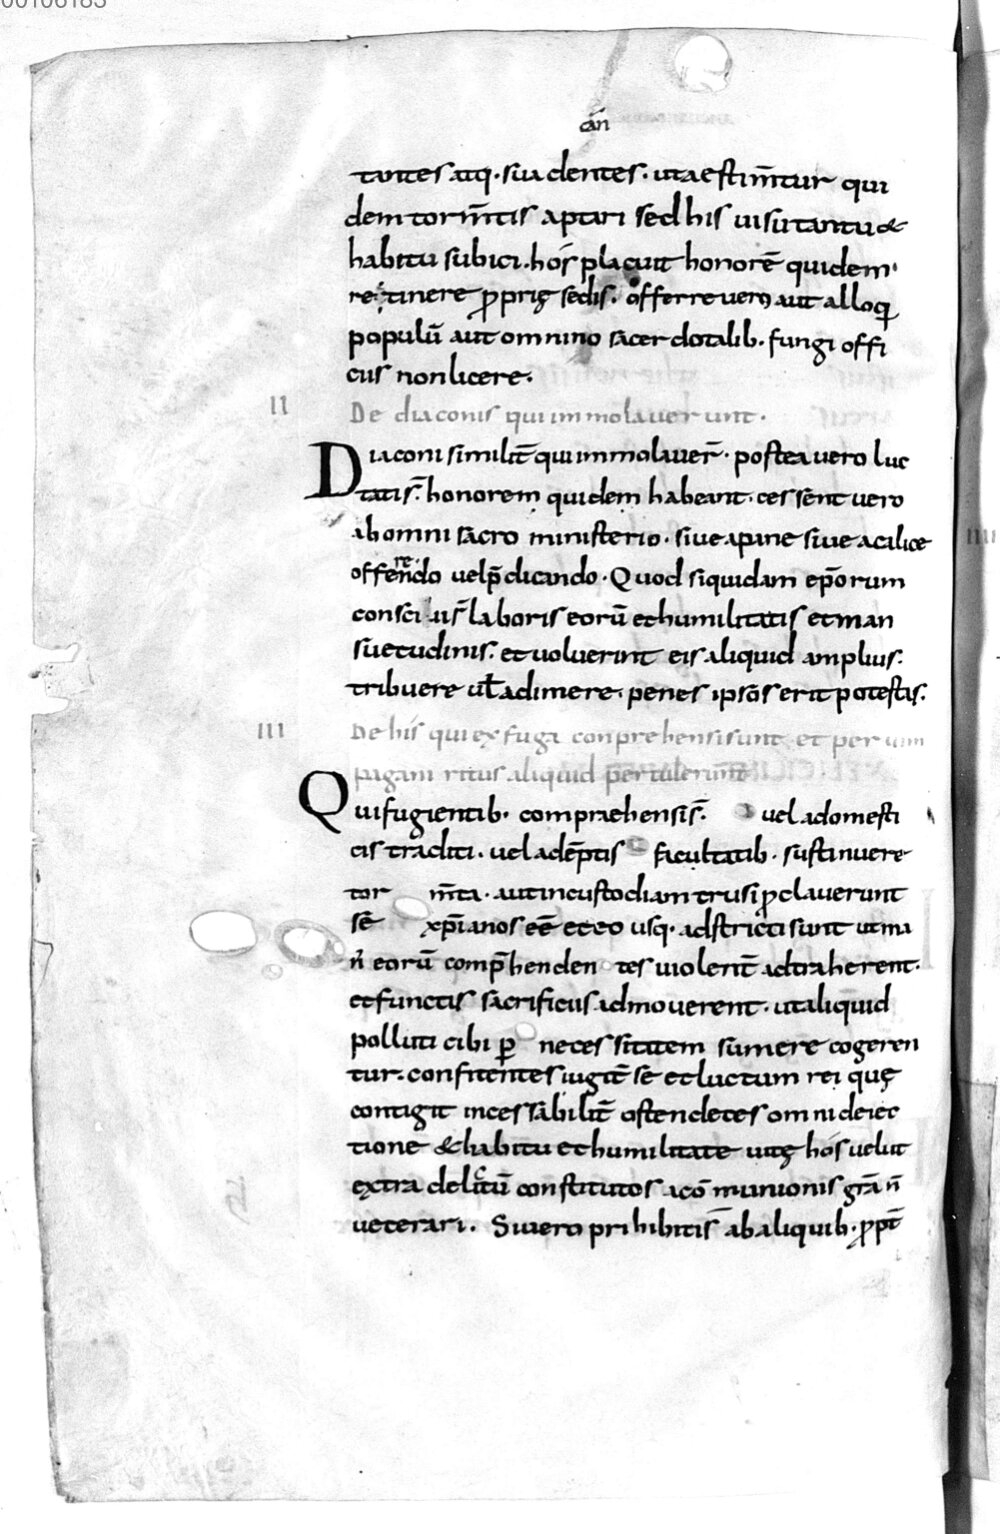 00106183
cañ
tantes atq· suadentes· utaestim̄tur qui
dem torm̄tis aptari sed his uisu tantu &
habitu subici· hos placuit honorē quidem
retinere ꝓprię sedis· offerre uero aut alloq̄
populū aut omnino sacerdotalib· fungi offi
ciis non licere·
II De diaconis qui immolauerunt·
Diaconi similit̄ qui immolauer̄· postea uero luc
tatis̄· honorem quidem habeant· cessent uero
ab omni sacro ministerio· siue apane siue acalice
offerendo uel p̄dicando· Quod siquidam ep̄orum
consci us̄ laboris eorū et humilitatis et man
suetudinis· et uoluerint eis aliquid amplius·
tribuere ul̄ adimere· penes ipsos erit potestas·
III De his qui ex fuga conprehensi sunt et per uim
pagani ritus aliquid pertulerunt
Qui fugientib· compraehensis̄· uel adomesti
cis traditi· uel adēptis facultatib· sustinuere
tor m̄ta· aut incustodiam trusi ꝓclauerunt
sē xp̄ianos eē et eo usq· adstricti sunt ut ma
n̄ eorū comp̄henden tes uiolent̄ adtraherent·
et functis sacrificiis admouerent· ut aliquid
polluti cibi p̱ necessitatem sumere cogeren
tur· confitentes iugit̄ se et luctum rei quę
contigit incessabilit̄ ostendetes omni deiec
tione & habitu et humilitate uitę hos uelut
extra delictū constitutos acōmunionis grā n̄
ueterari· Si uero prihibitis̄ ab aliquib· ꝓpt̄